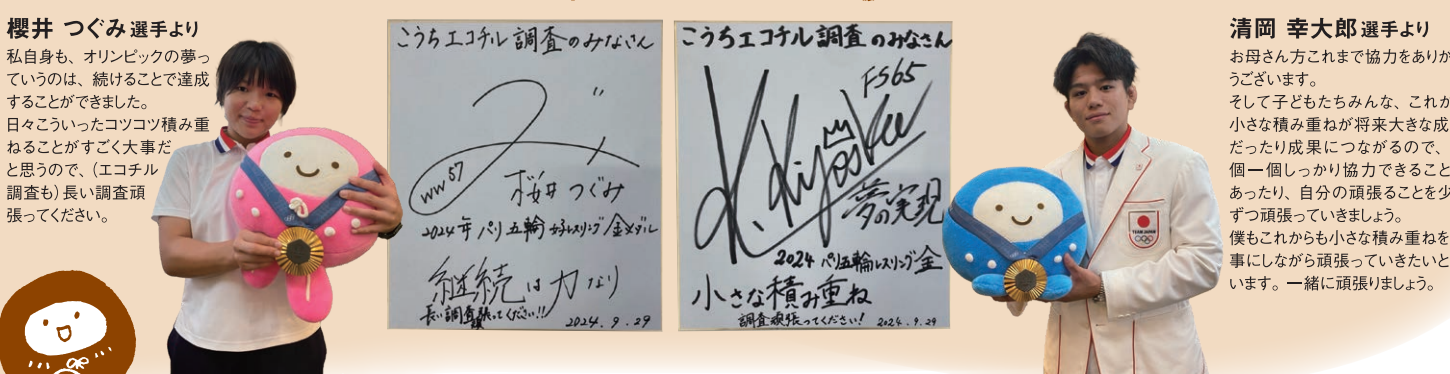 櫻井 つぐみ選手より
私自身も、オリンピックの夢っ
ていうのは、続けることで達成
することができました。
日々こういったコツコツ積み重
ねることがすごく大事だ
と思うので、（エコチル
調査も）長い調査頑
張ってください。
こうちエコチル調査のみなさん
ww 57
桜井つぐみ
2024年パリ五輪女子レスリング金メダル
継続は力なり
長い調査頑張ってください!!
2024.9.29
こうちエコチル調査のみなさん
FS65
K.Kiyooka
夢の実現
2024 パリ五輪レスリング金
小さな積み重ね
調査頑張ってください！ 2024.9.29
TEAM JAPAN
清岡 幸大郎選手より
お母さん方これまで協力をありが
うございます。
そして子どもたちみんな、これか
小さな積み重ねが将来大きな成
だったり成果につながるので、
個一個しっかり協力できること
あったり、自分の頑張ることを少
ずつ頑張っていきましょう。
僕もこれからも小さな積み重ねを
事にしながら頑張っていきたいと
います。一緒に頑張りましょう。